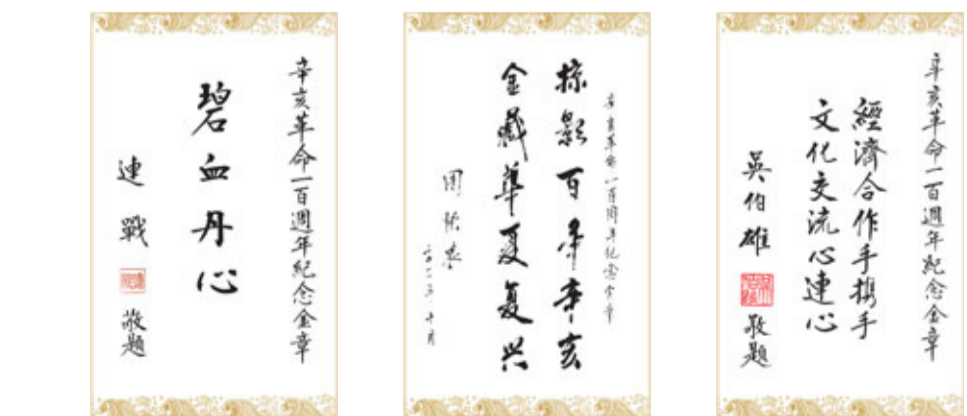 辛亥革命一百週年紀念金章
碧血丹心
連戰 敬題
辛亥革命一百周年纪念金章
掠影百年辛亥
金藏華夏复兴
周铁農
二〇一一年十月
辛亥革命一百週年紀念金章
經濟合作手攜手
文化交流心連心
吳伯雄 敬題